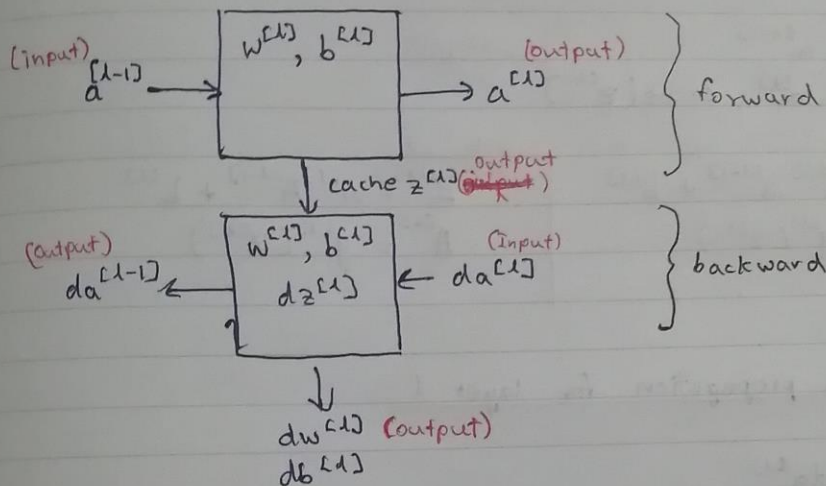 (input)
a^[l-1]
w^[l], b^[l]
(output)
a^[l]
forward
cache z^[l] (output)
(output)
da^[l-1]
w^[l], b^[l]
dz^[l]
(Input)
da^[l]
backward
dw^[l] (output)
db^[l]